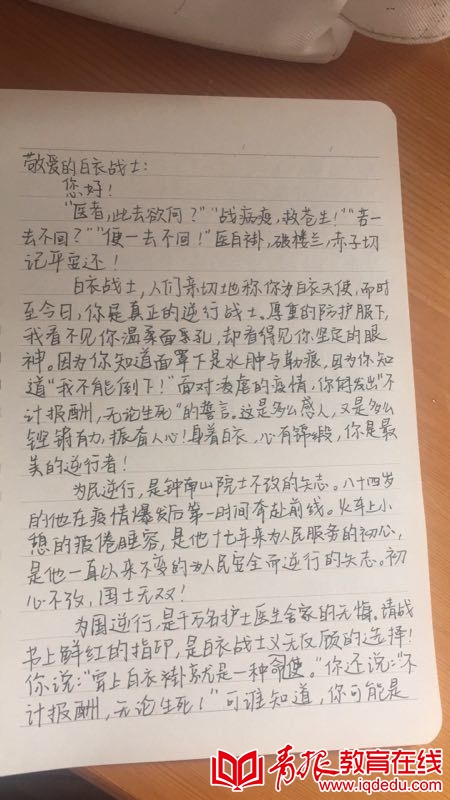 敬爱的白衣战士：
您好！
“医者，此去欲何？”“战病疫，救苍生！”“若一
去不回？”“便一去不回！”医白褂，破楼兰，赤子切
记平安还！
白衣战士，人们亲切地称你为白衣天使，而时
至今日，你是真正的逆行战士。厚重的防护服下，
我看不见你温柔面孔，却看得见你坚定的眼
神。因为你知道面罩下是水肿与勒痕，因为你知
道“我不能倒下！”面对凑虐的疫情，你们发出“不
计报酬，无论生死”的誓言。这是多么感人，又是多么
铿锵有力，振奋人心！身着白衣，心有锦缎，你是最
美的逆行者！
为民逆行，是钟南山院士不改的矢志。八十四岁
的他在疫情爆发后第一时间奔赴前线。火车上小
憩的疲倦睡容，是他十七年来为人民服务的初心，
是他一直以来不变的为人民安全而逆行的矢志。初
心不改，国士无双！
为国逆行，是千万名护士医生舍家的无悔。请战
书上鲜红的指印，是白衣战士义无反顾的选择！
你说：“穿上白衣褂就是一种命使。”你还说：“不
计报酬，无论生死！”可谁知道，你可能是
青报教育在线
www.iqdedu.com